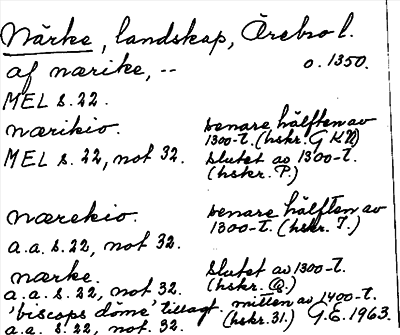 Närke, landskap, Örebro l.
af nærike, -- o. 1350.
MEL s. 22.
nærikio. senare hälften av
1300-t. (hskr. G K U)
MEL s. 22, not 32. slutet av 1300-t.
(hskr. P.)
nærekio. senare hälften av
1300-t. (hskr. T.)
a.a. s. 22, not 32.
nærke. slutet av 1300-t.
a.a. s. 22, not 32. (hskr. Q.)
'biscops döme' tillagt. mitten av 1400-t.
a.a. s. 22, not 32. (hskr. 31.) G.E. 1963.